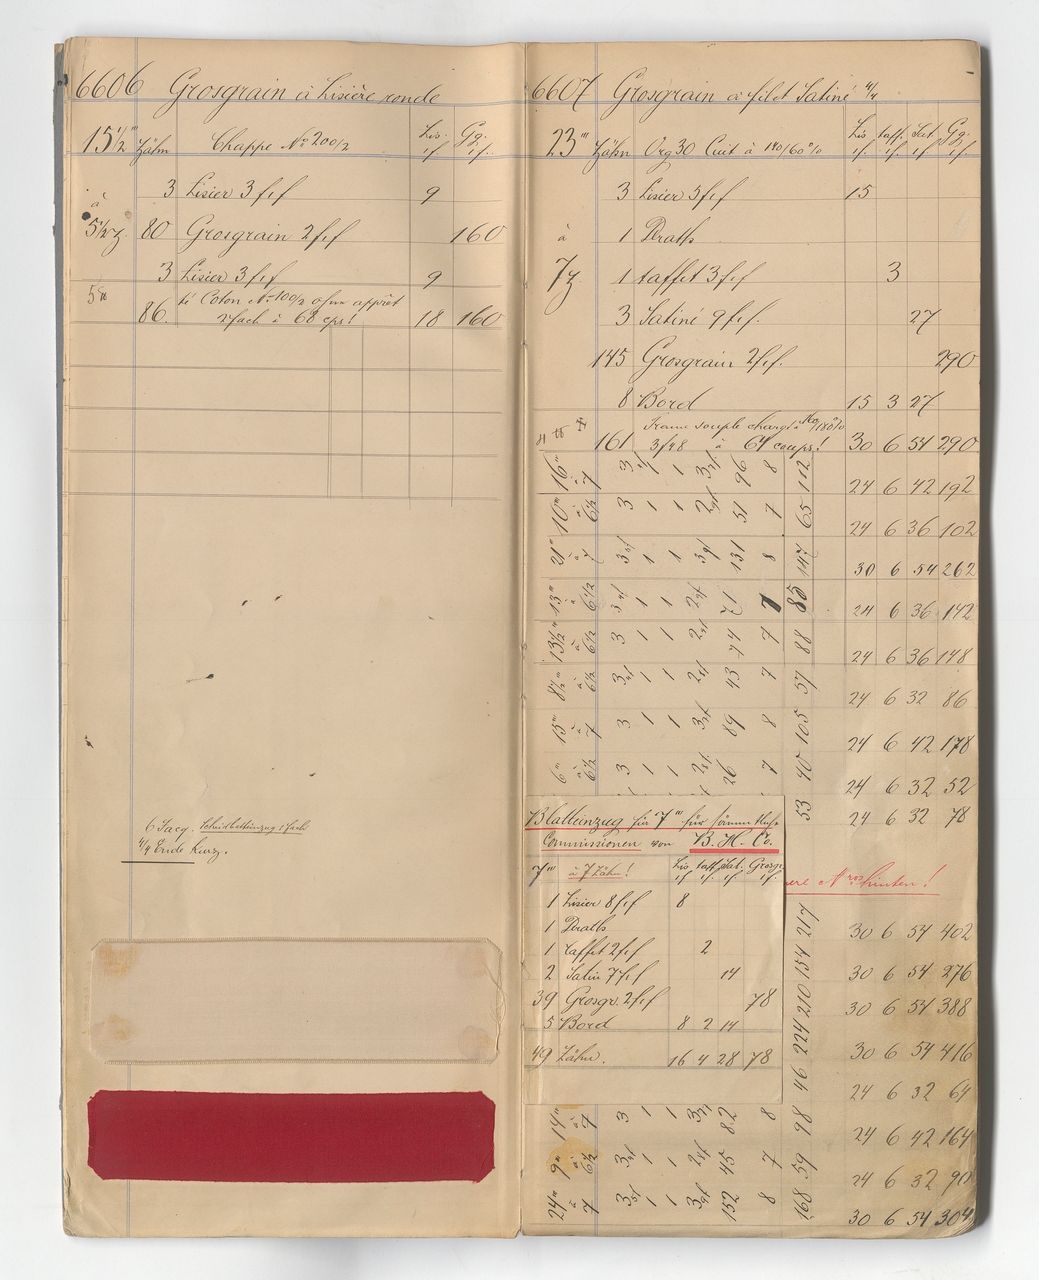 6606 Grosgrain à Lisière ronde
15 1/2''' Zähn Chappe No 200/2 Lis. if. Gg. if.
3 Lisier 3 fif 9
à
5 1/2 z. 80 Grosgrain 2 fif 160
3 Lisier 3 fif 9
Coton No 100/2 ohne apprêt
86. 2fach à 68 cps! 18 160
6 Jacq.
4/4 Ende Kurz.
6607 Grosgrain à filet Satiné 4/4
23''' Zähn Org 30 Cuit à 140/60 % Lis if. taff. if. Sat. if. Gg. if.
3 Lisier 3 fif 15
à 1 Deralls
7 z. 1 taffet 3 fif 3
3 Satiné 9 fif. 27
145 Grosgrain 2 fif. 290
8 Bord 15 3 27
Trame souple chargé à
161 3/48 à 64 coups! 30 6 54 290
16''' à 7 3 1 1 3 96 8 112 24 6 42 192
10''' à 6 1/2 3 1 1 2 51 7 65 24 6 36 102
21''' à 7 3 1 1 3 131 8 147 30 6 54 262
13''' à 6 1/2 3 1 1 2 71 7 85 24 6 36 142
13 1/2''' à 6 1/2 3 1 1 2 74 7 88 24 6 36 148
8 1/2''' à 6 1/2 3 1 1 2 43 7 57 24 6 32 86
15''' à 7 3 1 1 3 89 8 105 24 6 42 178
6''' à 6 1/2 3 1 1 2 26 7 40 24 6 32 52
53 24 6 32 78
Blatteinzug für 7''' für sämmtliche
Commissionen von B. H. Co.
7''' à 7 Zähn! Lis if. taff if. Sat. if. Grosgr. if.
1 Lisier 8 fif 8
1 Deralls
1 Taffet 2 fif 2
2 Satin 7 fif 14
39 Grosgr. 2 fif 78
5 Bord 8 2 14
49 Zähn. 16 4 28 78
Nros hinten!
217 30 6 54 402
154 30 6 54 276
210 30 6 54 388
224 30 6 54 416
46 24 6 32 64
14''' à 7 3 1 1 3 82 8 98 24 6 42 164
9''' à 6 1/2 3 1 1 2 45 7 59 24 6 32 90
24''' à 7 3 1 1 3 152 8 168 30 6 54 304